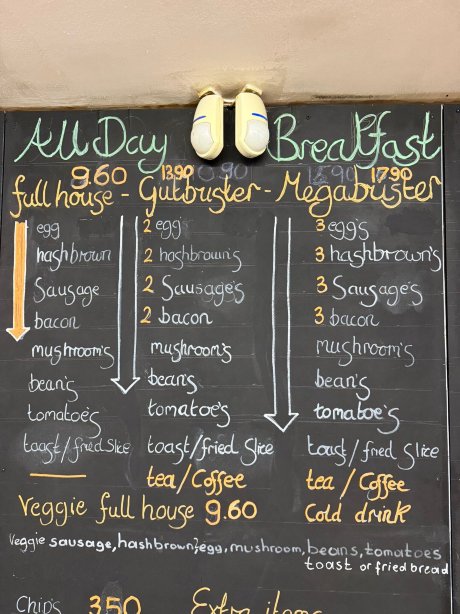 All Day Breakfast
9.60 13.90 17.90
full house - Gutbuster - Megabuster
egg 2 egg's 3 egg's
hashbrown 2 hashbrown's 3 hashbrown's
Sausage 2 Sausage's 3 Sausage's
bacon 2 bacon 3 bacon
mushroom's mushroom's mushroom's
bean's bean's bean's
tomatoe's tomatoe's tomatoe's
toast/fried Slice toast/fried Slice toast/fried Slice
tea/Coffee tea/Coffee
Veggie full house 9.60 Cold drink
Veggie sausage, hashbrown, egg, mushroom, beans, tomatoes
toast or fried bread
Chip's 3.50 Extra items